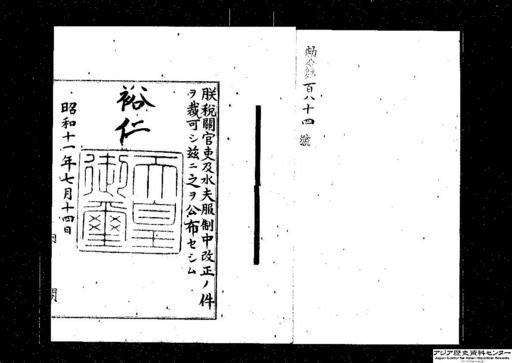 勅令第百八十四號
朕税關官吏及水夫服制中改正ノ件
ヲ裁可シ茲ニ之ヲ公布セシム
裕仁
天皇御璽
昭和十一年七月十四日
アジア歴史資料センター
Japan Center for Asian Historical Records